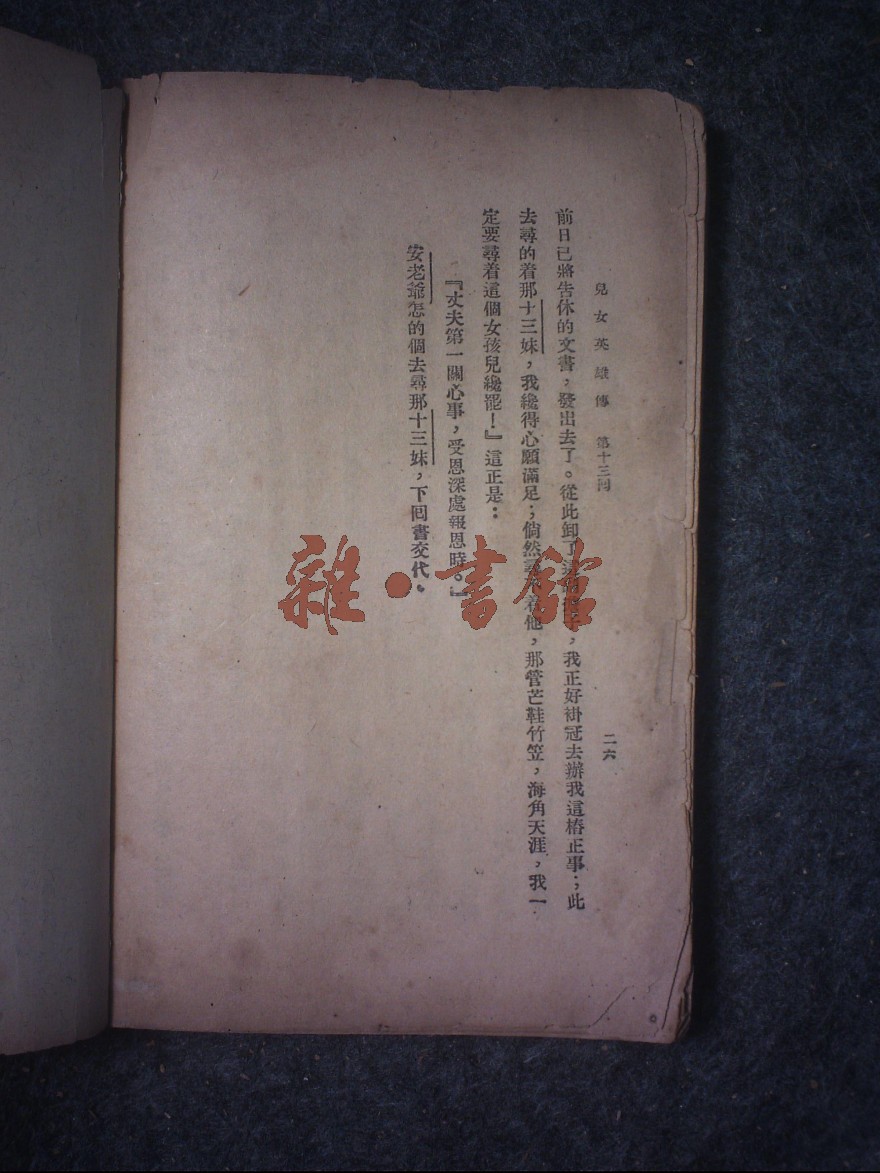 兒女英雄傳 第十三回
二六
前日已將告休的文書，發出去了。從此卸了這，我正好褂冠去辦我這樁正事；此
去尋的着那十三妹，我纔得心願滿足；倘然尋不着他，那管芒鞋竹笠，海角天涯，我一
定要尋着這個女孩兒纔罷！』這正是：
『丈夫第一關心事，受恩深處報恩時。』
安老爺怎的個去尋那十三妹，下回書交代。
雜·書館